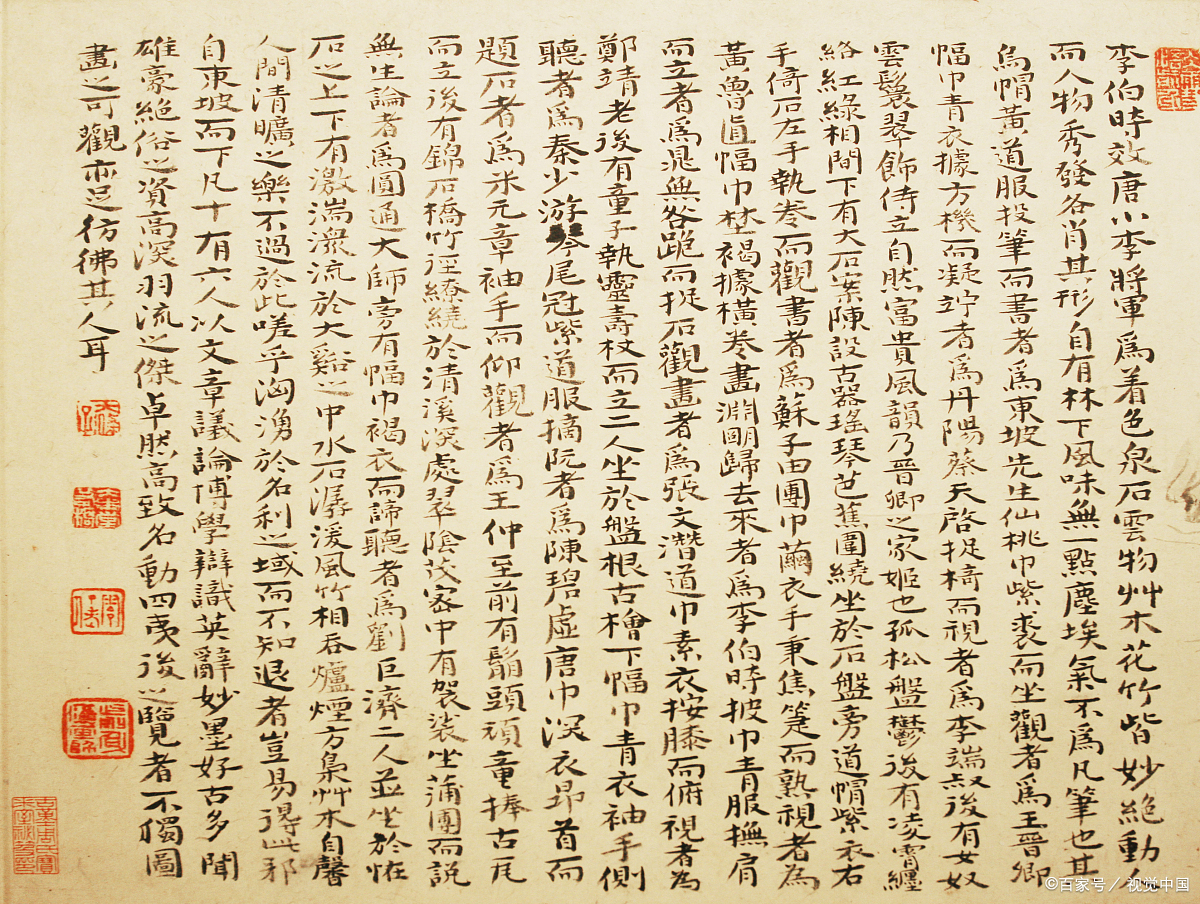 李伯時效唐小李將軍爲着色泉石雲物艸木花竹皆妙絕動人
而人物秀發各肖其形自有林下風味無一點塵埃氣不爲凡筆也其
烏帽黃道服投筆而書者爲東坡先生仙桃巾紫裘而坐觀者爲王晉卿
幅巾青衣據方機而凝竚者爲丹陽蔡天啓捉椅而視者爲李端叔後有女奴
雲鬟翠飾侍立自然富貴風韻乃晉卿之家姬也孤松盤鬱後有凌霄纏
絡紅綠相間下有大石案陳設古器瑤琴芭蕉圍繞坐於石盤旁道帽紫衣右
手倚石左手執卷而觀書者爲蘇子由團巾繭衣手秉焦箑而熟視者爲
黃魯直幅巾埜褐據橫卷畫淵明歸去來者爲李伯時披巾青服撫肩
而立者爲晁無咎跪而捉石觀畫者爲張文潛道巾素衣按膝而俯視者爲
鄭靖老後有童子執靈壽杖而立二人坐於盤根古檜下幅巾青衣袖手側
聽者爲秦少游琴尾冠紫道服摘阮者爲陳碧虛唐巾深衣昂首而
題石者爲米元章袖手而仰觀者爲王仲至前有鬅頭頑童捧古瓦
而立後有錦石橋竹徑繚繞於清溪深處翠陰茂密中有袈裟坐蒲團而說
無生論者爲圓通大師旁有幅巾褐衣而諦聽者爲劉巨濟二人並坐於怪
石之上下有激湍潀流於大谿之中水石潺湲風竹相吞爐煙方裊艸木自馨
人間清曠之樂不過於此嗟乎洶湧於名利之域而不知退者豈易得此邪
自東坡而下凡十有六人以文章議論博學辯識英辭妙墨好古多聞
雄豪絕俗之資高深羽流之傑卓然高致名動四夷後之覽者不獨圖
畫之可觀亦足彷彿其人耳
©百家号／视觉中国